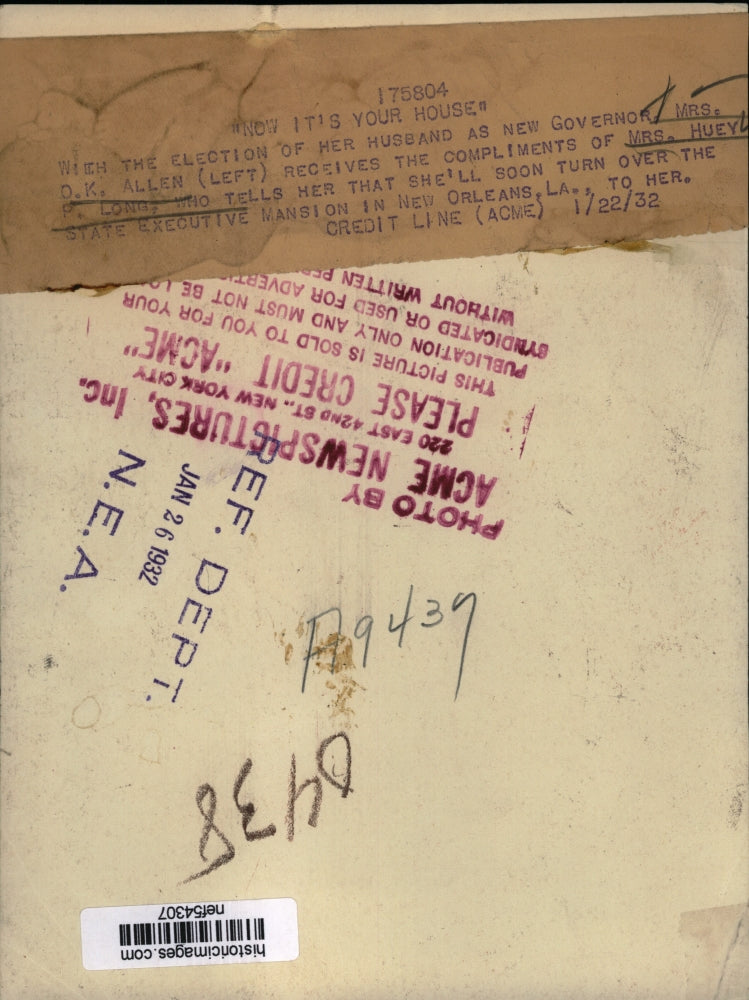 175804
"NOW IT'S YOUR HOUSE"
WITH THE ELECTION OF HER HUSBAND AS NEW GOVERNOR, MRS.
O.K. ALLEN (LEFT) RECEIVES THE COMPLIMENTS OF MRS. HUEY
P. LONG, WHO TELLS HER THAT SHE'LL SOON TURN OVER THE
STATE EXECUTIVE MANSION IN NEW ORLEANS, LA., TO HER.
CREDIT LINE (ACME) 1/22/32
PHOTO BY
ACME NEWSPICTURES, Inc.
220 EAST 42ND ST., NEW YORK CITY
PLEASE CREDIT "ACME"
THIS PICTURE IS SOLD TO YOU FOR YOUR
PUBLICATION ONLY AND MUST NOT BE
SYNDICATED OR USED FOR
WITHOUT WRITTEN
REF. DEPT.
JAN 26 1932
N.E.A.
A9439
historicimages.com
nef54307